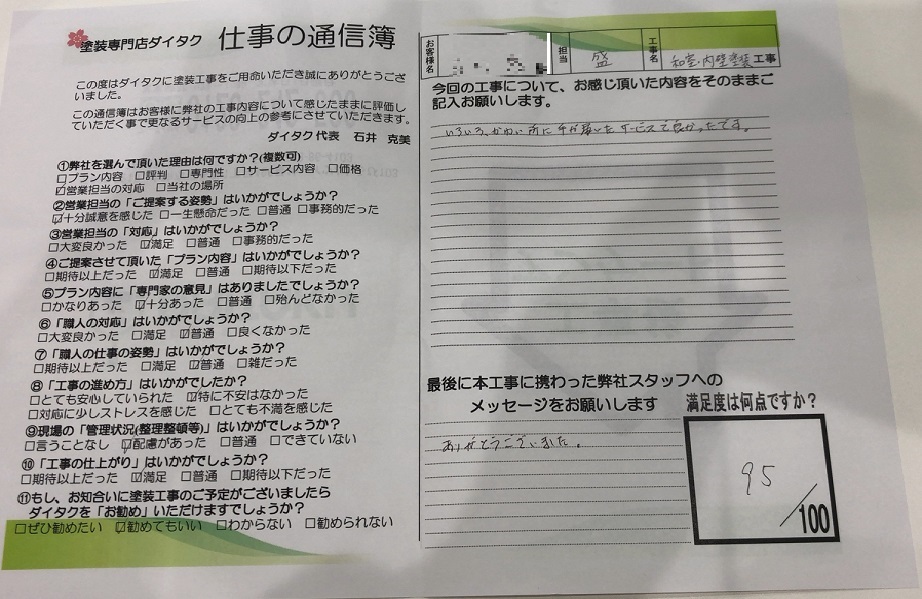 塗装専門店ダイタク 仕事の通信簿
この度はダイタクに塗装工事をご用命いただき誠にありがとうござ
いました。
この通信簿はお客様に弊社の工事内容について感じたままに評価し
ていただく事で更なるサービスの向上の参考にさせていただきます。
ダイタク代表 石井 克美
①弊社を選んで頂いた理由は何ですか?(複数可)
□プラン内容 □評判 □専門性 □サービス内容 □価格
☑営業担当の対応 □当社の場所
②営業担当の「ご提案する姿勢」はいかがでしょうか?
☑十分誠意を感じた □一生懸命だった □普通 □事務的だった
③営業担当の「対応」はいかがでしょうか?
□大変良かった ☑満足 □普通 □事務的だった
④ご提案させて頂いた「プラン内容」はいかがでしょうか?
□期待以上だった ☑満足 □普通 □期待以下だった
⑤プラン内容に「専門家の意見」はありましたでしょうか?
□かなりあった ☑十分あった □普通 □殆んどなかった
⑥「職人の対応」はいかがでしょうか?
□大変良かった □満足 ☑普通 □良くなかった
⑦「職人の仕事の姿勢」はいかがでしょうか?
□期待以上だった □満足 ☑普通 □雑だった
⑧「工事の進め方」はいかがでしたか?
□とても安心していられた ☑特に不安はなかった
□対応に少しストレスを感じた □とても不満を感じた
⑨現場の「管理状況(整理整頓等)」はいかがでしょうか?
□言うことなし ☑配慮があった □普通 □できていない
⑩「工事の仕上がり」はいかがでしょうか?
□期待以上だった ☑満足 □普通 □期待以下だった
⑪もし、お知合いに塗装工事のご予定がございましたら
ダイタクを「お勧め」いただけますでしょうか?
□ぜひ勧めたい ☑勧めてもいい □わからない □勧められない
お客様名 担当 盛 工事名 和室・内壁塗装工事
今回の工事について、お感じ頂いた内容をそのままご
記入お願いします。
いろいろ、かゆい所に手が届いたサービスで良かったです。
最後に本工事に携わった弊社スタッフへの
メッセージをお願いします
ありがとうございました。
満足度は何点ですか?
95
/100